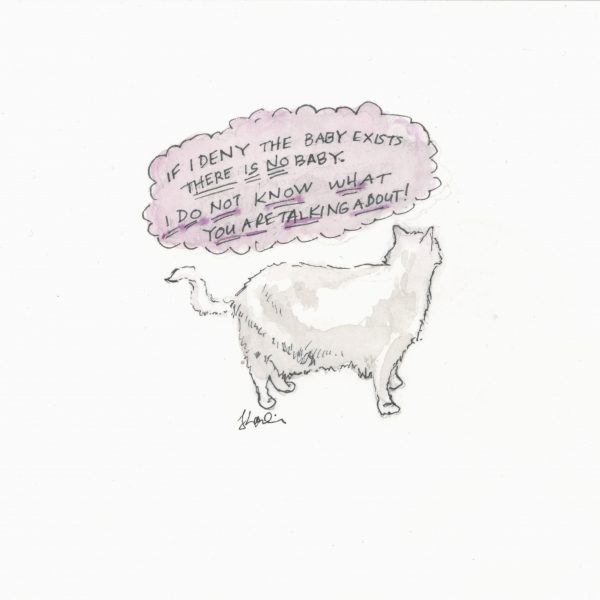 IF I DENY THE BABY EXISTS
THERE IS NO BABY.
I DO NOT KNOW WHAT
YOU ARE TALKING ABOUT!